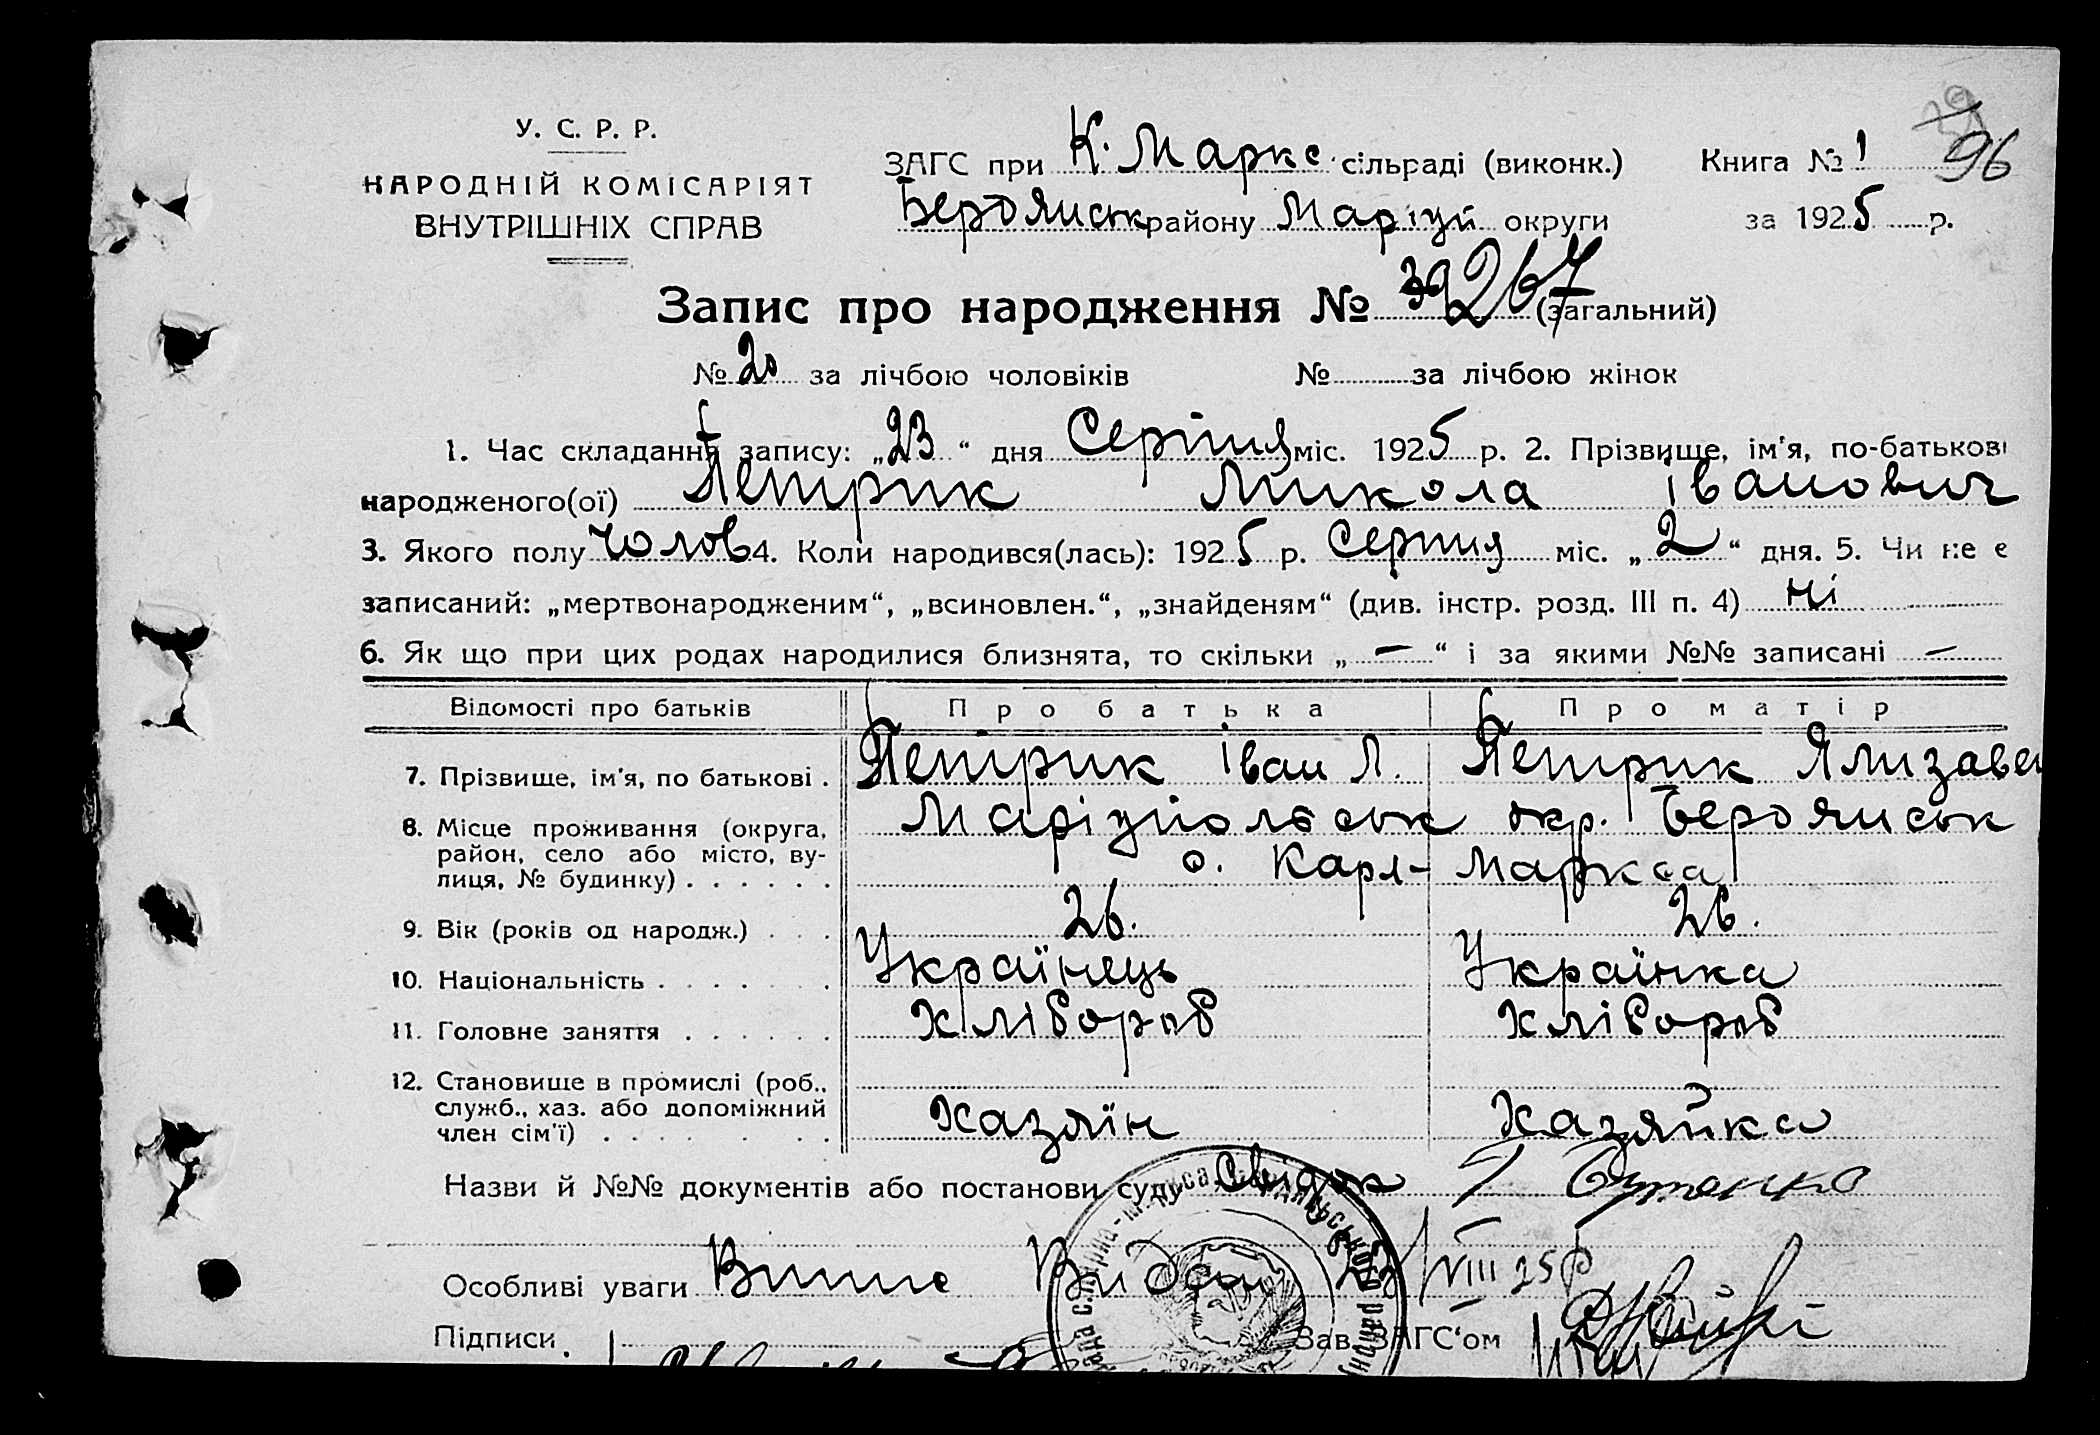 У. С. Р. Р.
НАРОДНІЙ КОМІСАРІЯТ
ВНУТРІШНІХ СПРАВ
ЗАГС при К. Маркс. сільраді (виконк.) Книга № 1 96
Бердянськ району Маріуп округи за 1925 р.
Запис про народження № 39 267 (загальний)
№ 20 за лічбою чоловіків № за лічбою жінок
1. Час складання запису: „23“ дня Серпня міс. 1925 р. 2. Прізвище, ім'я, по-батькові
народженого(ої) Петрик Микола Іванович
3. Якого полу чолов 4. Коли народився(лась): 1925 р. Серпня міс. „2“ дня. 5. Чи не є
записаний: „мертвонародженим“, „всиновлен.“, „знайденям“ (див. інстр. розд. III п. 4) Ні
6. Як що при цих родах народилися близнята, то скільки „—“ і за якими №№ записані —
Відомості про батьків Про батька Про матір
7. Прізвище, ім'я, по батькові . Петрик Іван Л. Петрик Ялизаве
8. Місце проживання (округа, Маріупольськ окр. Бердянськ
район, село або місто, ву-
лиця, № будинку) . . . . . . с. Карл-Маркса
9. Вік (років од народж.) . . . 26. 26.
10. Національність . . . . . . . Українець Українка
11. Головне заняття . . . . . . Хлібороб Хлібороб
12. Становище в промислі (роб.,
служб., хаз. або допоміжний
член сім'ї) . . . . . . . Хазяїн Хазяйка
Назви й №№ документів або постанови суду Свідок Бутенко
Особливі уваги Випис Видан 23/VIII 25 р
Підписи Зав. ЗАГС'ом